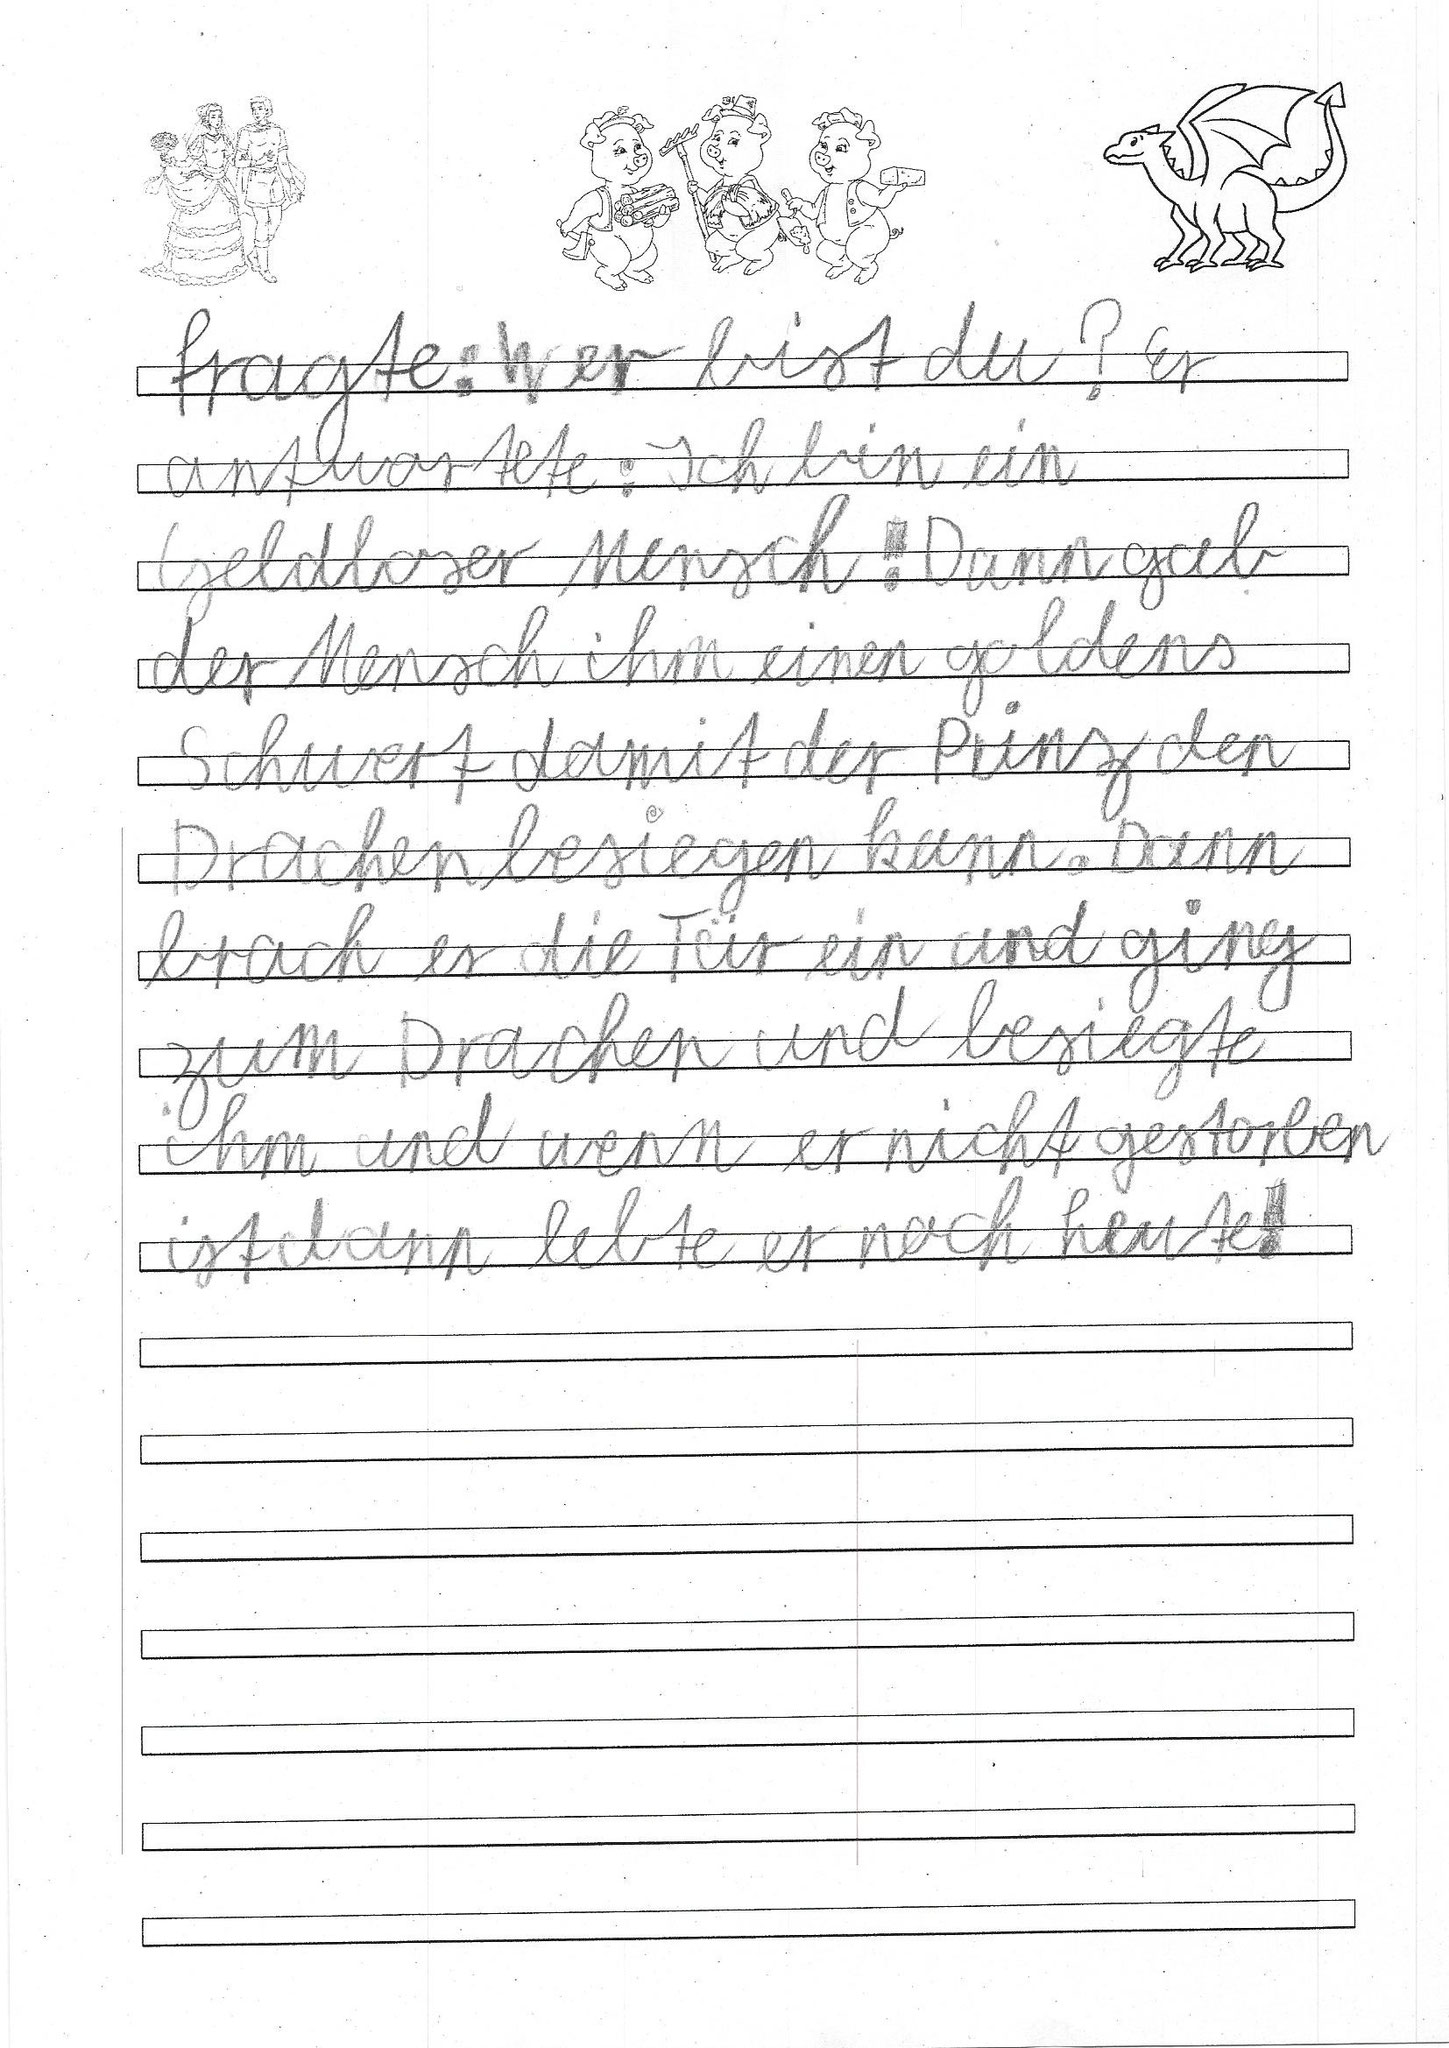 fragte: Wer bist du? Er
antwortete: Ich bin ein
Geldloser Mensch! Dann gab
der Mensch ihm einen goldens
Schwert damit der Prinz den
Drachen besiegen kann. Dann
brach er die Tür ein und ging
zum Drachen und besiegte
ihm und wenn er nicht gestorben
ist dann lebte er noch heute!